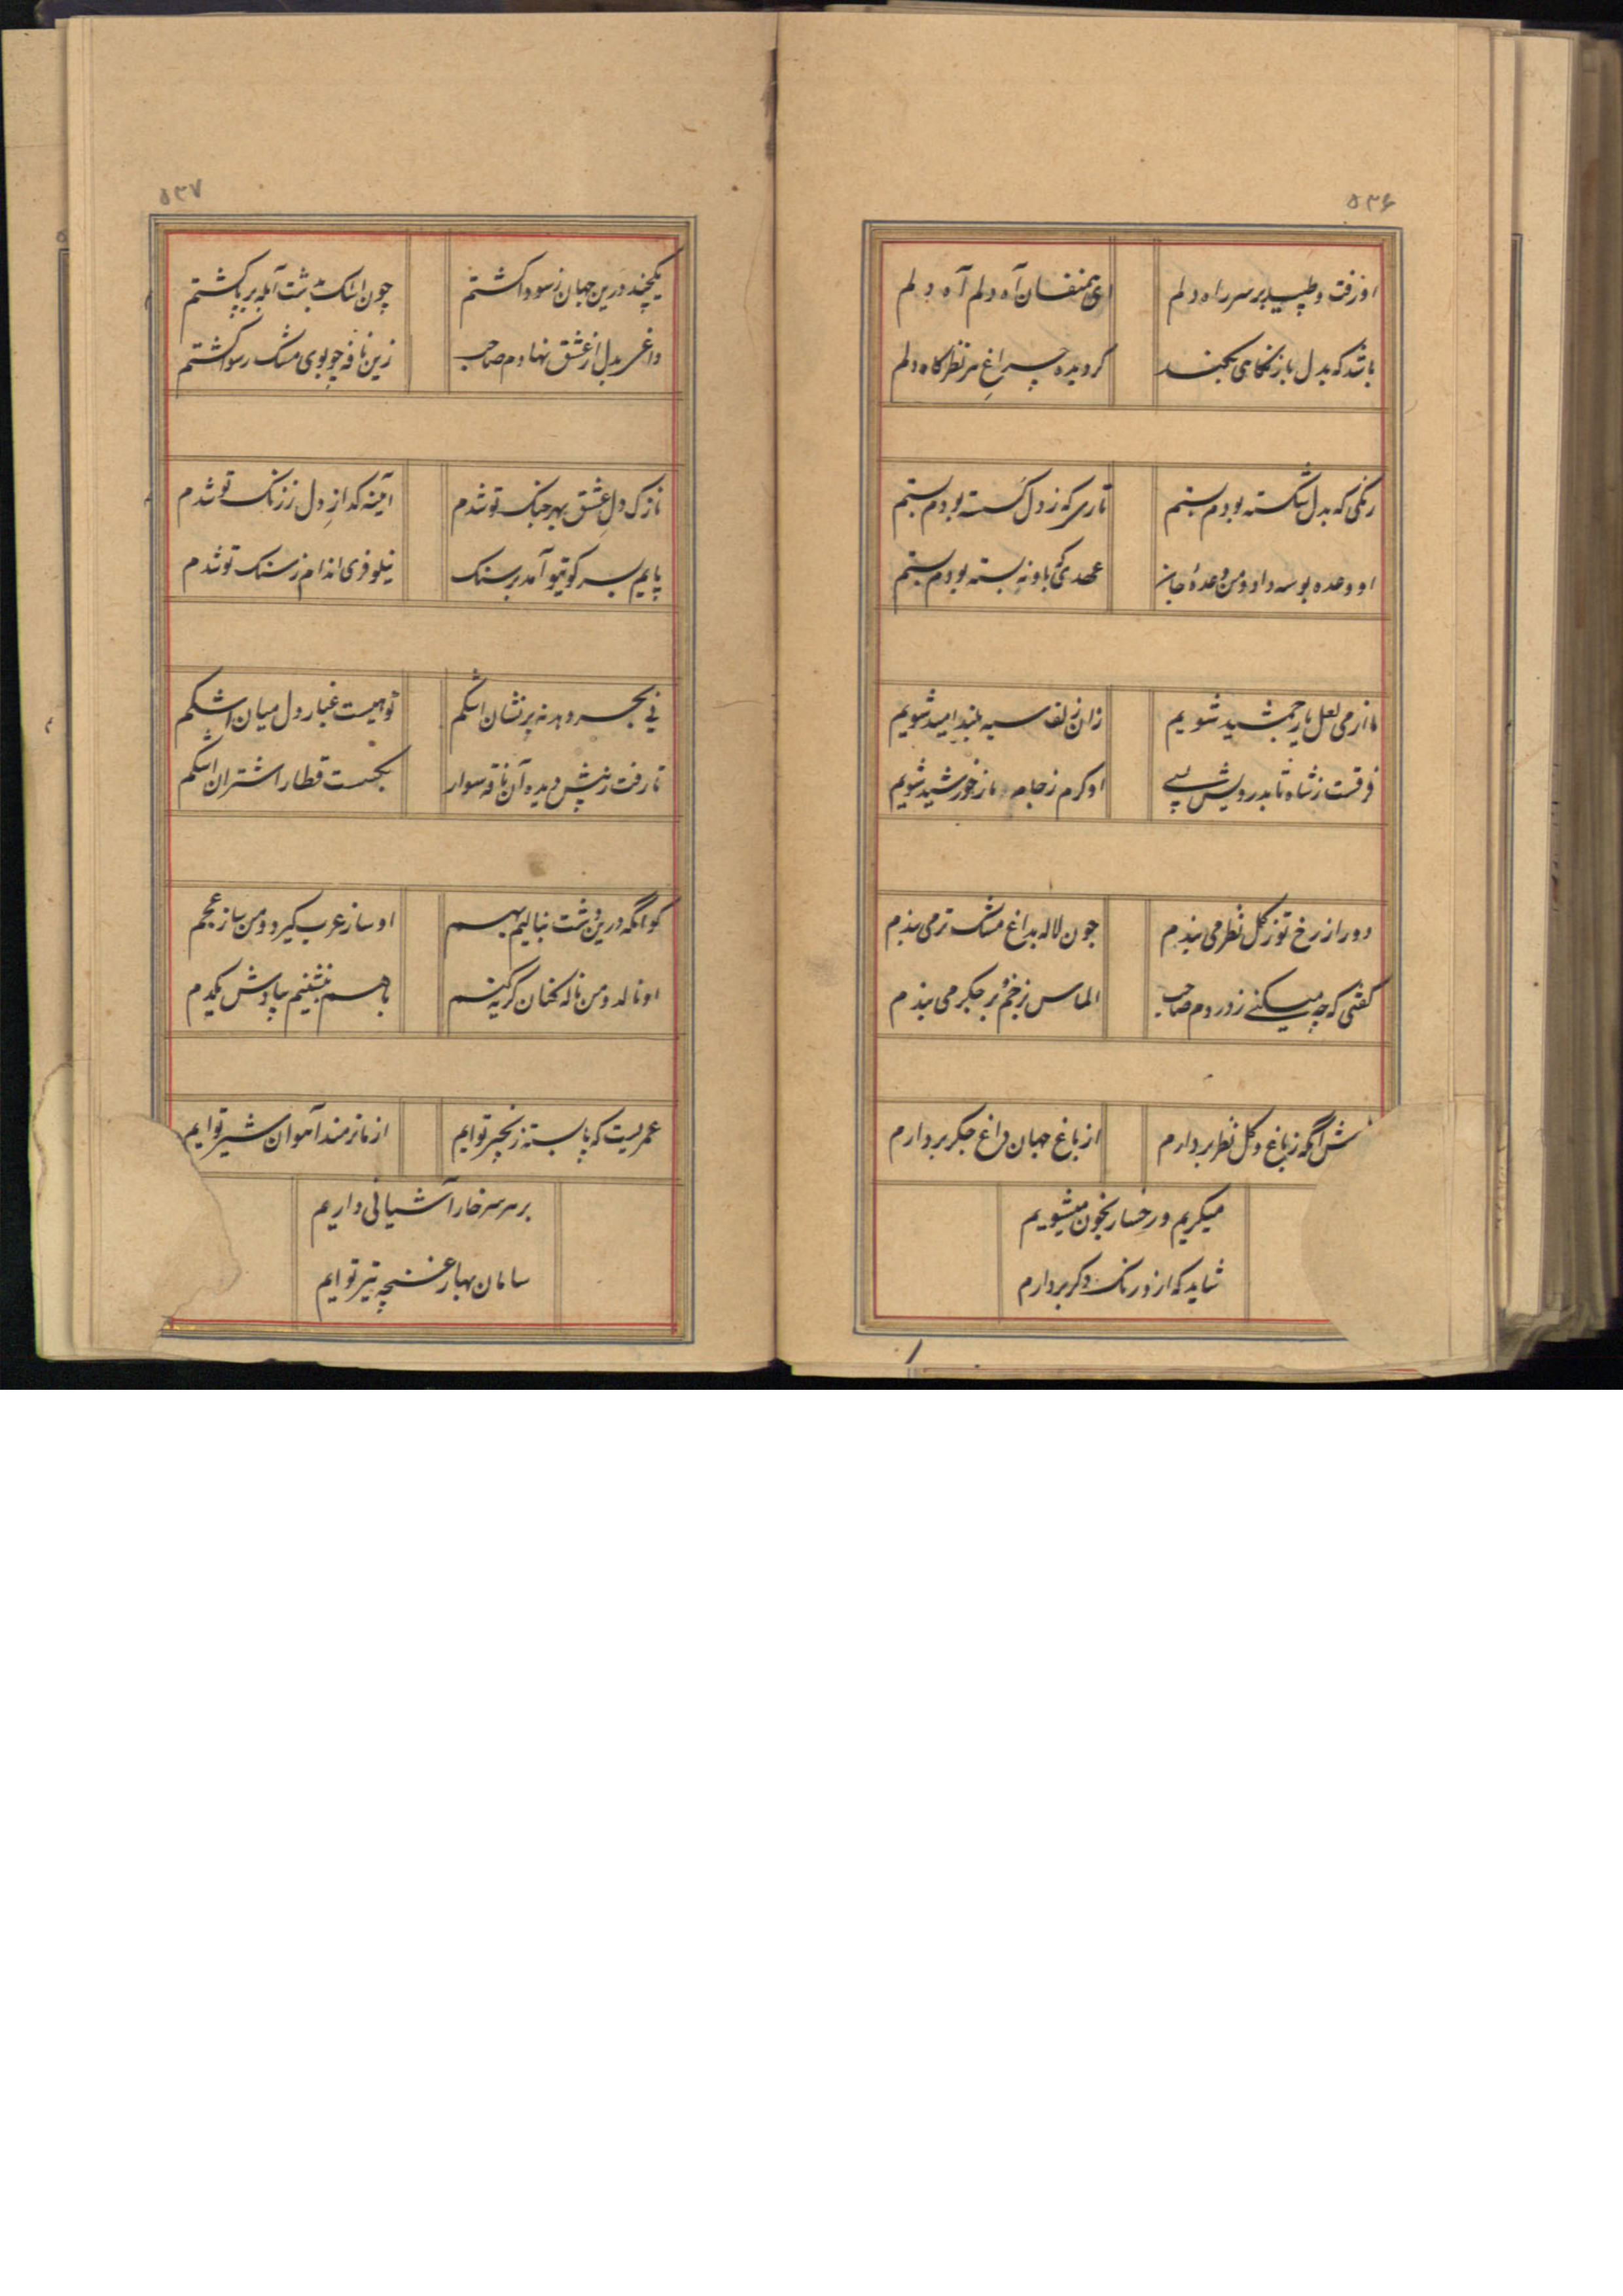 ۵۳۶
او رفت و طپید بر سر راه دلم
ای همنفسان آه دلم آه دلم
باشد که بدل باز نگاهی بکند
کردیده چراغ سر نظرگاه دلم
رنگی که بدل شکسته بودم بستم
تاری که ز دل گسسته بودم بستم
او وعده بوسه داد و من وعدهٔ جان
عهدی که باو نه بسته بودم بستم
ما از می لعل یار جمشید شویم
زان زلف سیه بلند امید شویم
فرقست ز شاه تا بدرویش بسی
او کرم ز جام ما ز خورشید شویم
دور از رخ تو ز گل نظر می بندم
چون لاله بداغ مشک تر می بندم
گفتی که چه میکنی ز دردم صاحب
الماس بزخم بر جگر می بندم
آنگه ز باغ و گل نظر بردارم
از باغ جهان داغ جگر بردارم
میگریم و رخسار بخون میشویم
شاید که ازو رنگ دگر بردارم
۵۳۷
یکچند درین جهان ز سودا گشتم
چون اشک بپشت آبله بر پا گشتم
داغی بدل از عشق نهادم صاحب
زین نافه چو بوی مشک رسوا گشتم
نازک دل عشق بهر جنگ تو شدم
آیینه گداز دل ز رنگ تو شدم
پایم بسر کوی تو آمد بر سنگ
نیلوفری اندام ز سنگ تو شدم
نی بحر و بر نه پر نشان اشکم
توأمیست غبار دل میان اشکم
تا رفت ز پیش دیده آن ناقه سوار
بگسست قطار اشتران اشکم
کو آنکه درین دشت بنالیم بهم
او ساز عرب گیرد و من ساز عجم
او نالد و من ناله کنان گریه کنم
باهم بنشینیم بیادش یکدم
عمریست که پا بسته زنجیر تو ایم
از ما نرمند آهوان شیر تو ایم
بر هر سر خار آشیانی داریم
سامان بهار غنچه تیر تو ایم